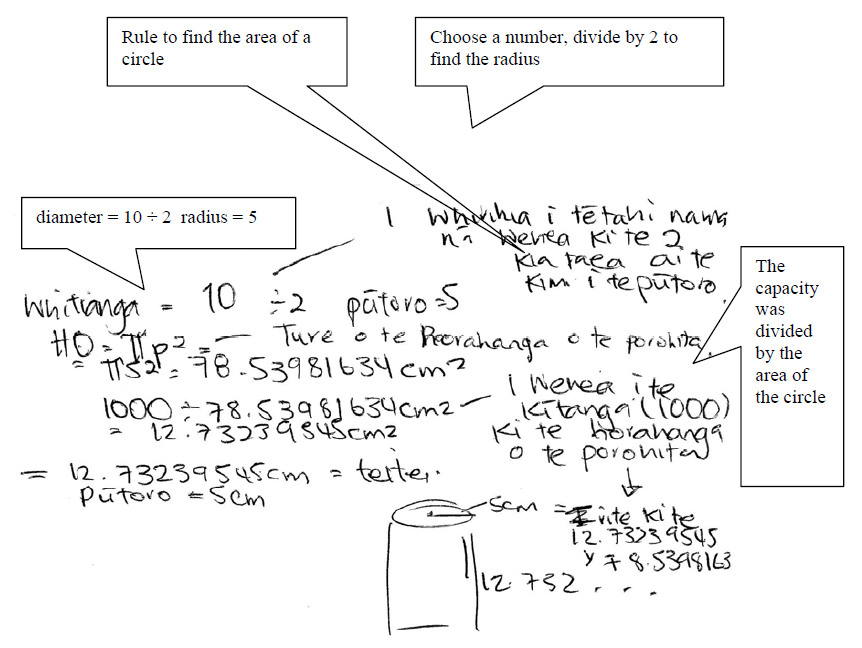 Rule to find the area of a
circle
Choose a number, divide by 2 to
find the radius
diameter = 10 ÷ 2 radius = 5
I whiwhia i tētahi nama
nā Werea ki te 2
kia taea ai te
kimi i te pūtoro.
The
capacity
was
divided
by the
area of
the circle
Whitianga = 10 ÷2 pūtoro=5
HO = πp² = Ture o te Horahanga o te porohita.
= π5² = 78.53981634cm²
1000 ÷ 78.53981634cm2
= 12.73239545cm2
I Werea i te
kītanga (1000)
ki te horahanga
o te porohita
= 12.73239545cm = teitei.
Pūtoro = 5cm
5cm = I rite ki te
12.73239545
78.5398163
12.732 . . .